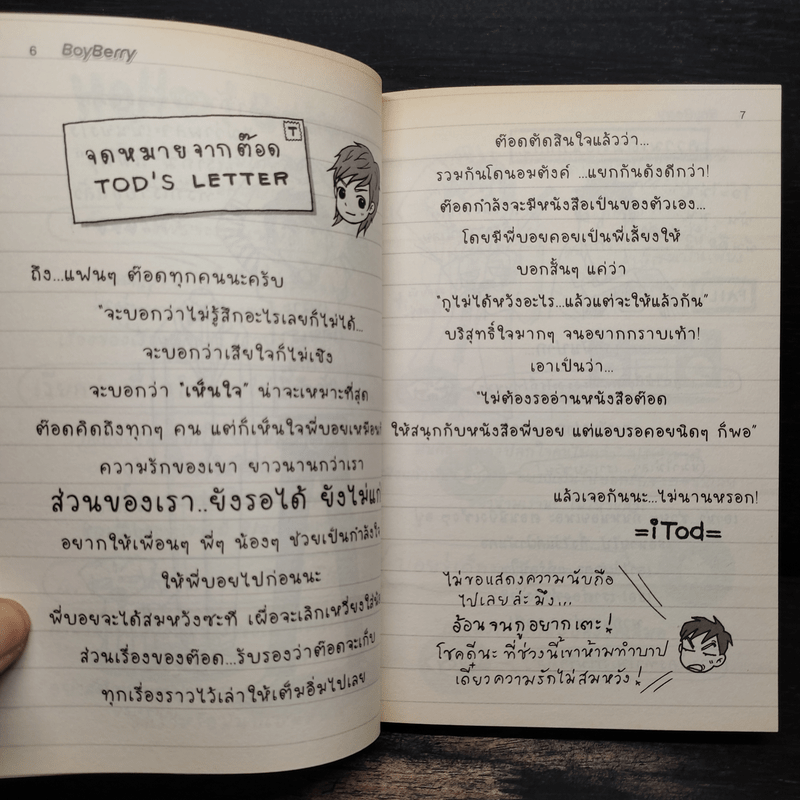 6 BoyBerry
T
จดหมายจากต๊อด
TOD'S LETTER
ถึง...แฟนๆ ต๊อดทุกคนนะครับ
"จะบอกว่าไม่รู้สึกอะไรเลยก็ไม่ได้...
จะบอกว่าเสียใจก็ไม่เชิง
จะบอกว่า "เห็นใจ" น่าจะเหมาะที่สุด
ต๊อดคิดถึงทุกๆ คน แต่ก็เห็นใจพี่บอยเหมือน
ความรักของเขา ยาวนานกว่าเรา
ส่วนของเรา..ยังรอได้ ยังไม่แก่
อยากให้เพื่อนๆ พี่ๆ น้องๆ ช่วยเป็นกำลังใจ
ให้พี่บอยไปก่อนนะ
พี่บอยจะได้สมหวังซะที เผื่อจะเลิกเหวี่ยงใส่
ส่วนเรื่องของต๊อด...รับรองว่าต๊อดจะเก็บ
ทุกเรื่องราวไว้เล่าให้เต็มอิ่มไปเลย
7
ต๊อดตัดสินใจแล้วว่า...
รวมกันโดนอมตังค์ ...แยกกันดังดีกว่า!
ต๊อดกำลังจะมีหนังสือเป็นของตัวเอง...
โดยมีพี่บอยคอยเป็นพี่เลี้ยงให้
บอกสั้นๆ แค่ว่า
"กูไม่ได้หวังอะไร...แล้วแต่จะให้แล้วกัน"
บริสุทธิ์ใจมากๆ จนอยากกราบเท้า!
เอาเป็นว่า...
"ไม่ต้องรออ่านหนังสือต๊อด
ให้สนุกกับหนังสือพี่บอย แต่แอบรอคอยนิดๆ ก็พอ"
แล้วเจอกันนะ...ไม่นานหรอก!
=iTod=
ไม่ขอแสดงความนับถือ
ไปเลยล่ะ มึง...
อ้อนจนกูอยากเตะ!
โชคดีนะ ที่ช่วงนี้เขาห้ามทำบาป
เดี๋ยวความรักไม่สมหวัง!